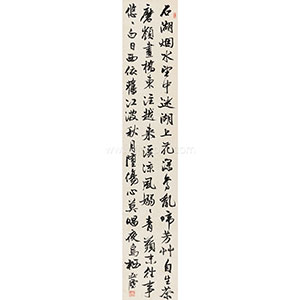 石湖烟水望中迷湖上花深鸟乱啼芳草自生茶
磨岭画桥东注越来溪凉风嫋嫋青蘋末往事
悠悠白日西依旧江波秋月堕伤心莫唱夜乌栖